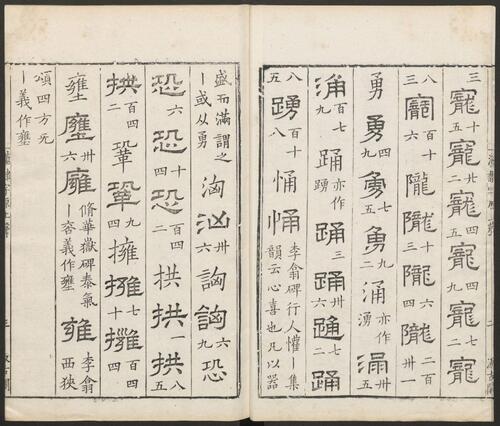 三寵五十寵廿二寵四五寵九二寵七二寵
隴百十隴十三隴四隴六二百卅一
勇勇四五勇九二涌亦作湧涌
涌百七九踊亦作踴踊三六踊卅二踊
八五踴百十八悀悀李翕碑行人懽丨集韻云心喜也凡以器
盛而滿謂之丨或从勇洶汹卅六詾詾六九恐
恐六恐十四恐百四二拱拱一拱八五
拱百四二鞏鞏九四擁擁百七十擁百四四
壅廱卅六廱脩華嶽碑泰氣丨否義作壅雍李翕西狹
頌四方无丨義作壅